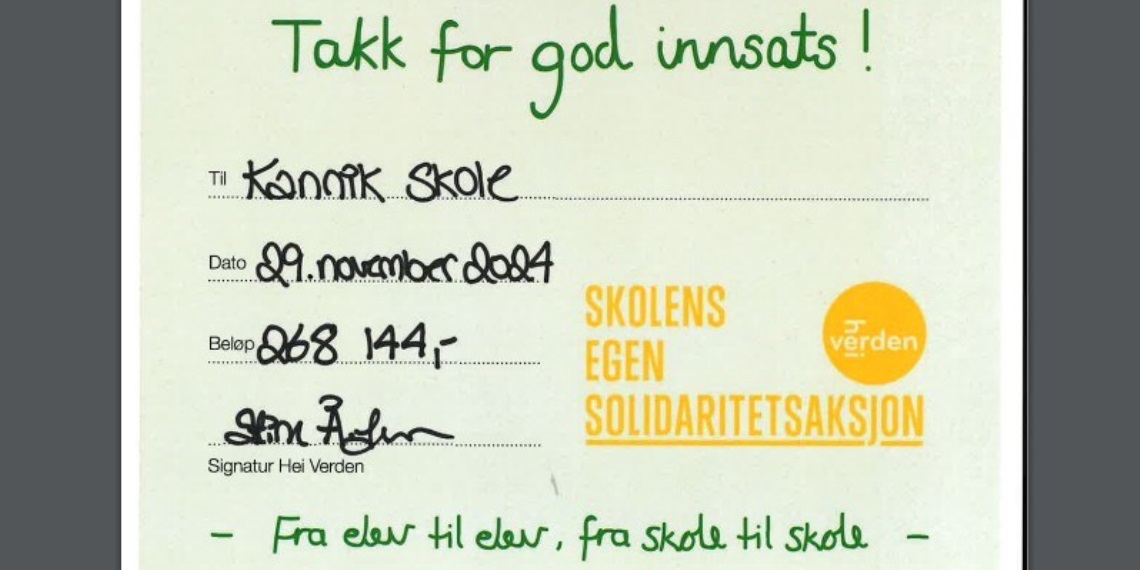 Takk for god innsats!
Til Kannik Skole
Dato 29. november 2024
Beløp 268 144,-
SKOLENS
EGEN
SOLIDARITETSAKSJON
hei verden
Stine
Signatur Hei Verden
- Fra elev til elev, fra skole til skole -